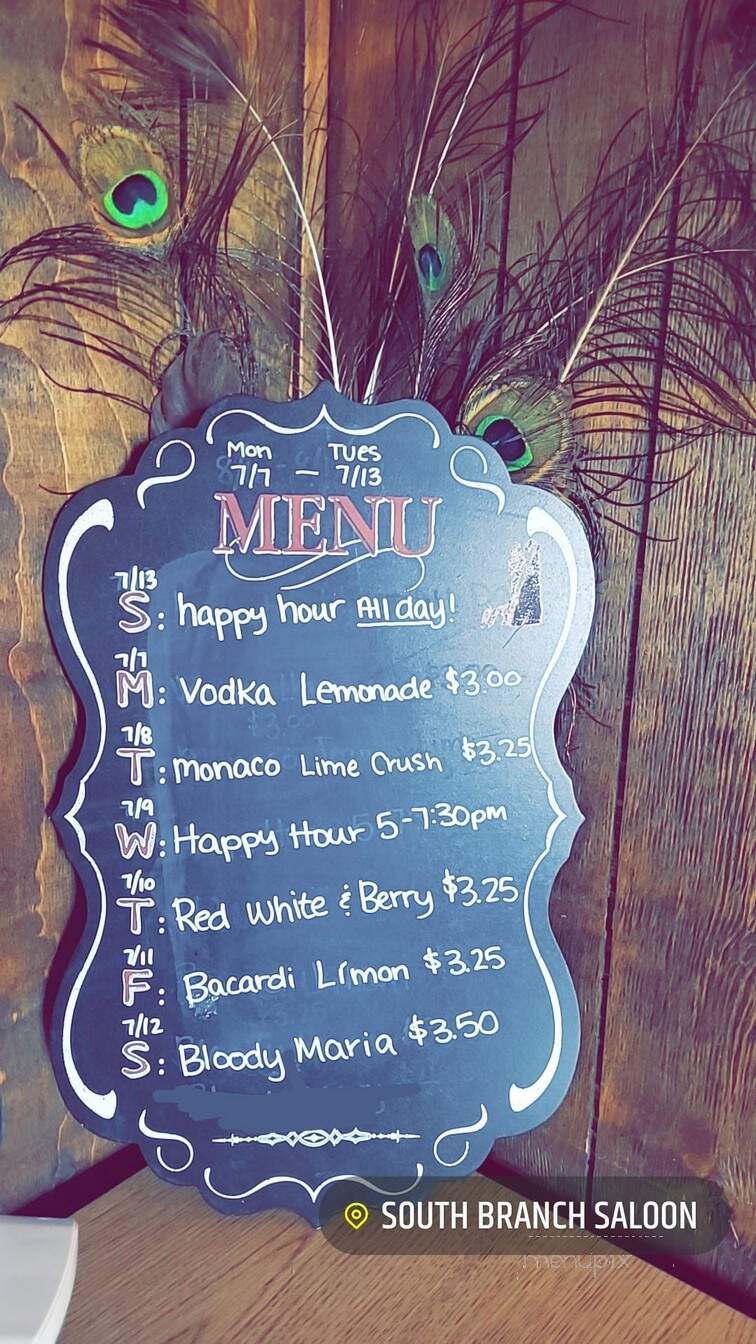 Mon Tues
7/7 — 7/13
MENU
7/13
S: happy hour All day!
7/7
M: Vodka Lemonade $3.00
7/8
T: Monaco Lime Crush $3.25
7/9
W: Happy Hour 5-7:30pm
7/10
T: Red White & Berry $3.25
7/11
F: Bacardi Límon $3.25
7/12
S: Bloody Maria $3.50
SOUTH BRANCH SALOON
menupix